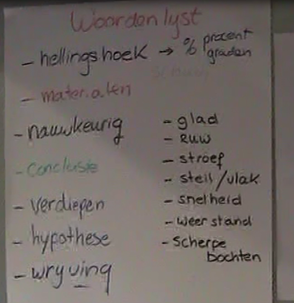 Woordenlyst
- hellingshoek → % procent
graden
- materialen
- nauwkeurig
- conclusie
- verdiepen
- hypothese
- wryving
- glad
- ruw
- stroef
- steil/vlak
- snelheid
- weerstand
- scherpe
bochten